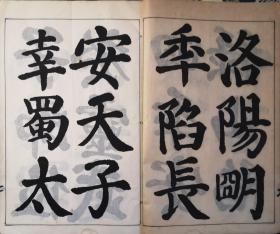 洛陽明
年陷長
安天子
幸蜀太